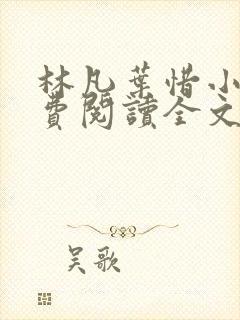 林凡葉惜小
費閱讀全文
吴歌